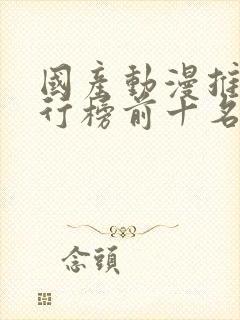 國産動漫推
行榜前十名
念頭